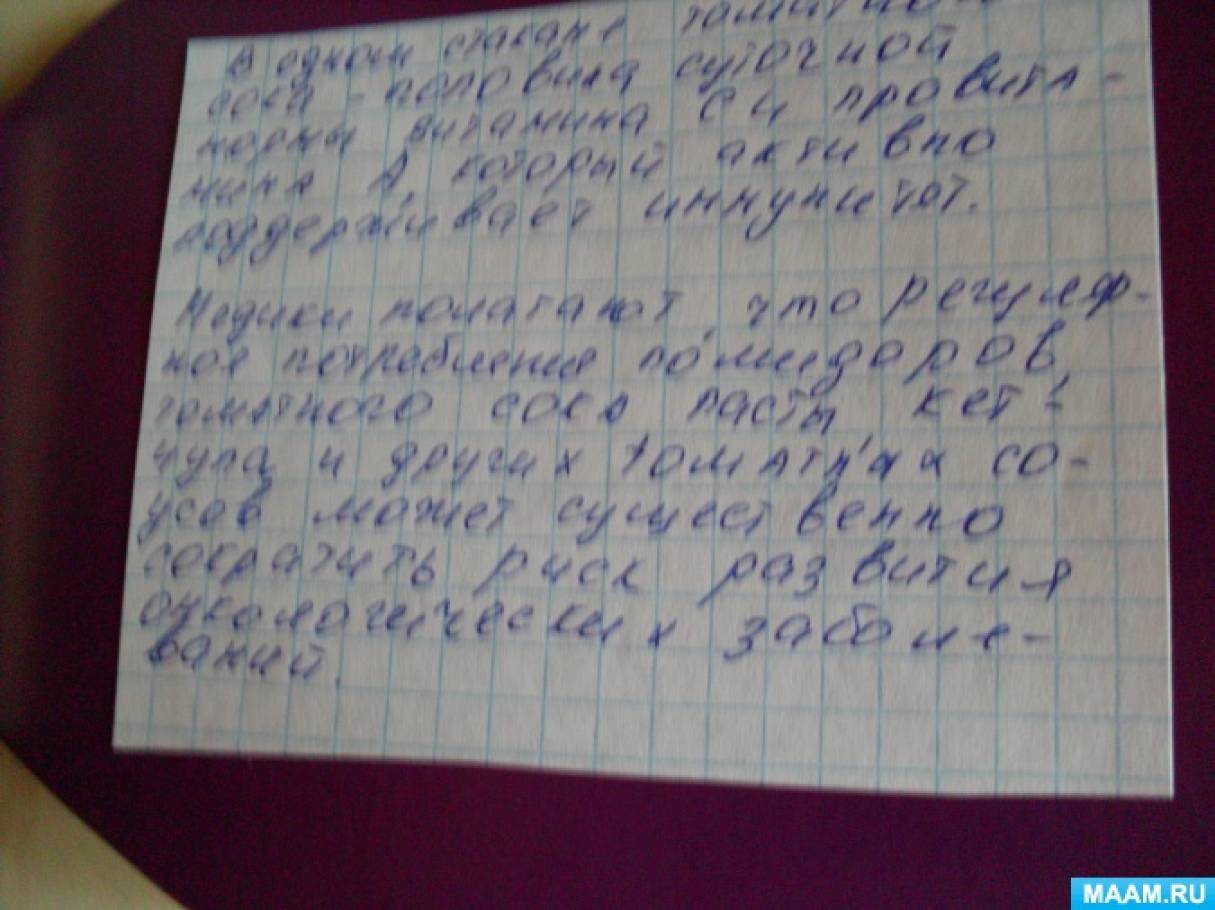 В одном стакане томатно-
сока - половина суточной
нормы витамина С и провита-
мина А, который активно
поддерживает иммунитет.
Медики полагают, что регуляр-
ное потребление помидоров,
томатного сока пасты кет-
чупа и других томатных со-
усов может существенно
сократить риск развития
онкологических заболе-
ваний.
MAAM.RU